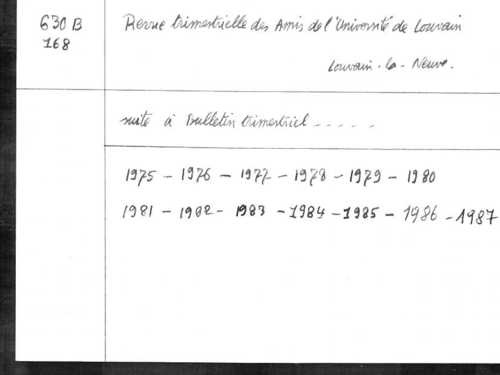 630 B
168
Revue trimestrielle des Amis de l'Université de Louvain
Louvain-la-Neuve.
suite à Bulletin trimestriel - - - - -
1975 - 1976 - 1977 - 1978 - 1979 - 1980
1981 - 1982 - 1983 - 1984 - 1985 - 1986 - 1987